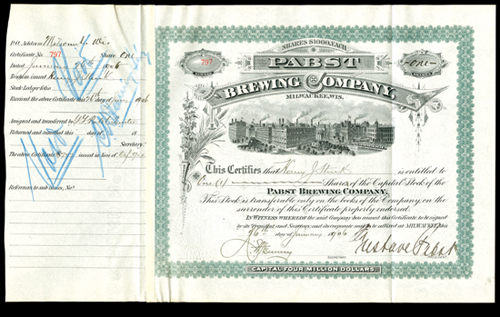 P.O. Address Milwaukee Wis
Certificate No. 797 Share One
Dated January 26th 1906
To whom issued Harry J. Stark
Stock Ledger folio
Received the above Certificate this day of 1906
Assigned and transferred to
Returned and cancelled this day of 18
Secretary.
The above Certificate issued in lieu of
References to sub. issues, No.
SHARES $1000. EACH
797
One
PABST
BREWING COMPANY,
MILWAUKEE, WIS.
This Certifies that Harry J. Stark is entitled to
One (1) Shares of the Capital Stock of the
PABST BREWING COMPANY.
This Stock is transferable only on the books of the Company, on the
surrender of this Certificate properly endorsed.
IN WITNESS WHEREOF the said Company has caused this Certificate to be signed
by its President and Secretary and its corporate seal to be affixed at MILWAUKEE
26th day of January 1906
Gustave Pabst
SECRETARY
PRESIDENT
CAPITAL FOUR MILLION DOLLARS.